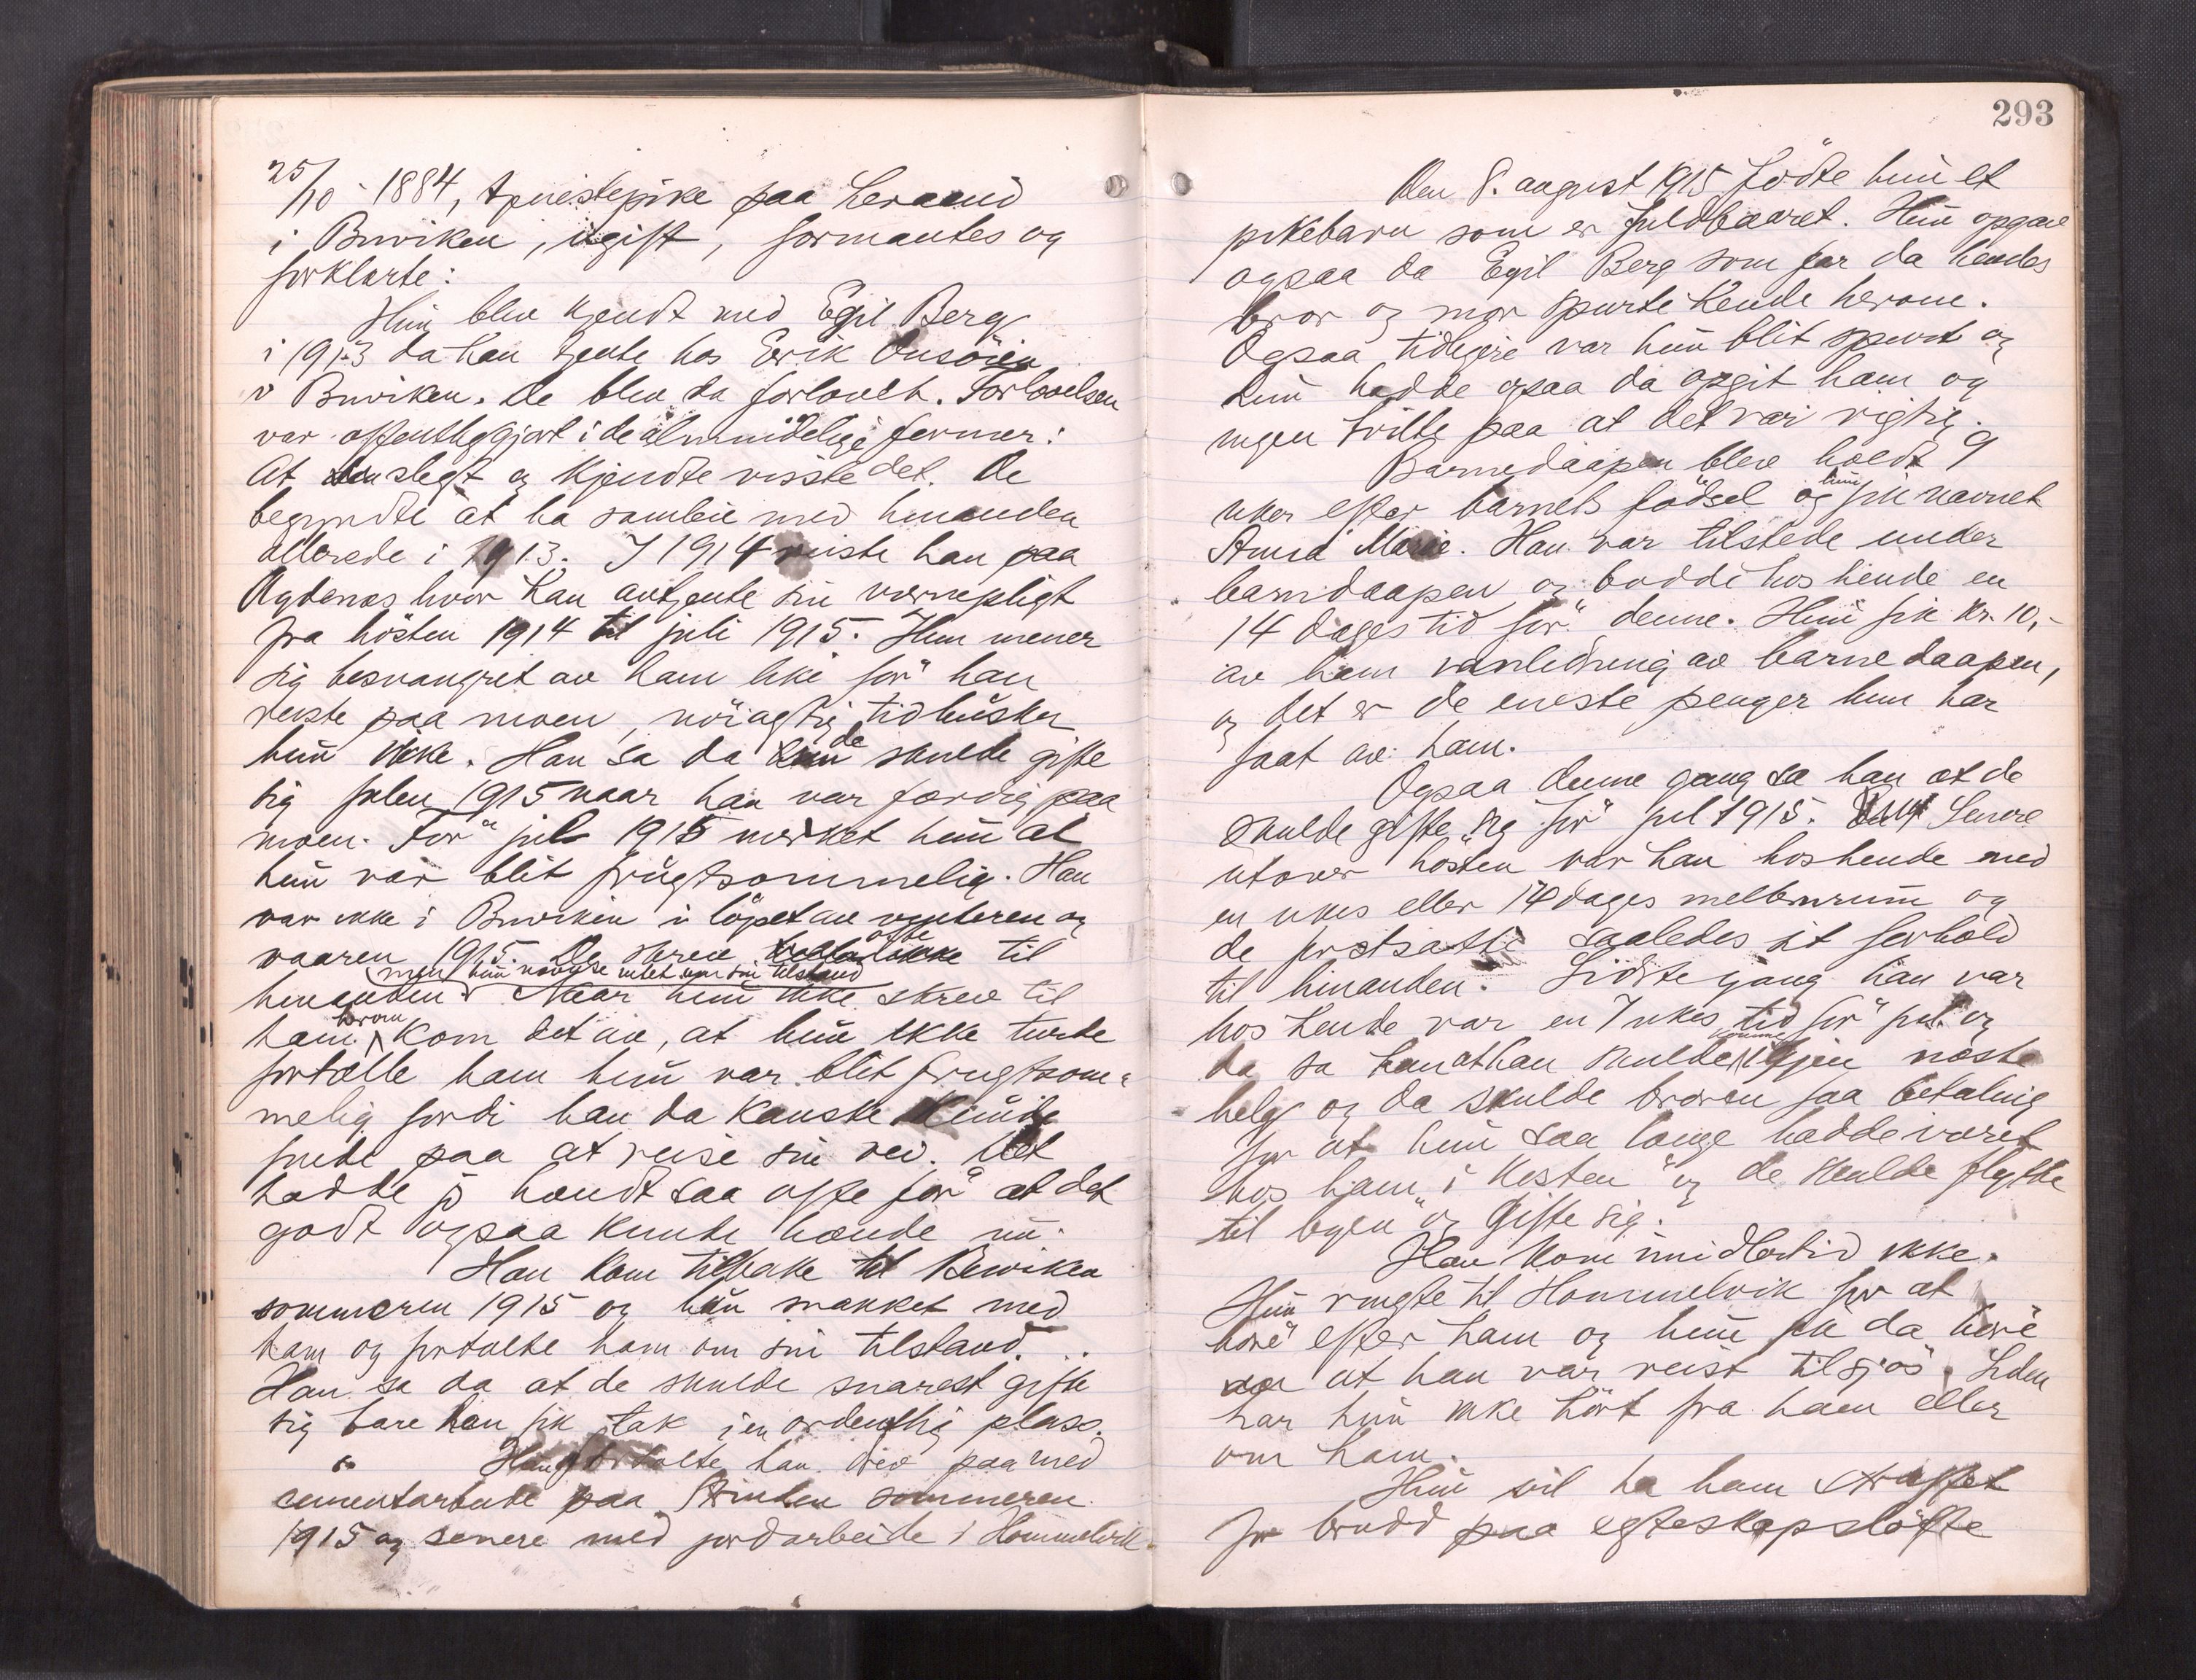 25/10 - 1884, tjenestepike paa Leraand
i Buviken, ugift, formantes og
forklarte:
Hun blev kjendt med Egil Berg
i 1913 da han tjente hos Erik Onsöien
i Buviken. De blev da forlovet. Forlovelsen
var offentliggjort i de almindelige former:
At slegt og kjendte visste det. De
begyndte at ha samleie med hinanden
allerede i 1913. I 1914 reiste han paa
Agdenes hvor han avtjente sin vernepligt
fra hösten 1914 til juli 1915. Hun mener
sig besvangret av ham like för han
reiste paa moen, nöiagtig tid husker
hun ikke. Han sa da de skulde gifte
sig julen 1915 naar han var færdig paa
moen. För jul 1915 merket hun at
hun var blit frugtsommelig. Han
var ikke i Buviken i löpet av vinteren og
vaaren 1915. De skrev ofte til
hinanden men hun nævnte intet om sin tilstand
Naar hun ikke skrev til
ham herom kom det av, at hun ikke turde
fortælle ham hun var blit frugtsom-
melig fordi han da kanske kunde
finde paa at reise sin vei. Det
hadde jo hændt saa ofte för at det
godt ogsaa kunde hænde nu.
Han kom tilbake til Buviken
sommeren 1915 og hun snakket med
ham og fortalte ham om sin tilstand.
Han sa da at de skulde snarest gifte
sig bare han fik tak i en ordentlig plass.
Han fortalte han drev paa med
cementarbeide paa Strinden sommeren
1915 og senere med jordarbeide i Hommelvik.
293
Den 8. august 1915 födte hun et
pikebarn som er fuldbaaret. Hun opgav
ogsaa da Egil Berg som far da hendes
bror og mor spurte hende herom.
Ogsaa tidligere var hun blit spurt og
hun hadde ogsaa da opgit ham og
ingen tvilte paa at det var rigtig.
Barnedaapen blev holdt 9
uker efter barnets födsel og hun fik navnet
Anna Marie. Han var tilstede under
barndaapen og bodde hos hende en
14 dages tid för denne. Hun fik kr. 10,-
av ham i anledning av barnedaapen,
og det er de eneste penger hun har
faat av ham.
Ogsaa denne gang sa han at de
skulde gifte sig för jul 1915. Senere
utover hösten var han hos hende med
en ukes eller 14 dages mellemrum og
de fortsatte saaledes sit forhold
til hinanden. Sidste gang han var
hos hende var en 7 ukes tid för jul og
da sa han at han skulde komme igjen næste
helg og da skulde broren faa betaling
for at hun saa længe hadde været
hos ham "i kosten" og de skulde flytte
"til byen" og gifte sig.
Han kom imidlertid ikke.
Hun ringte til Hommelvik for at
höre efter ham og hun fik da höre
at han var reist tilsjös. Siden
har hun ikke hört fra ham eller
om ham.
Hun vil ha ham straffet
for brudd paa egteskapslöfte